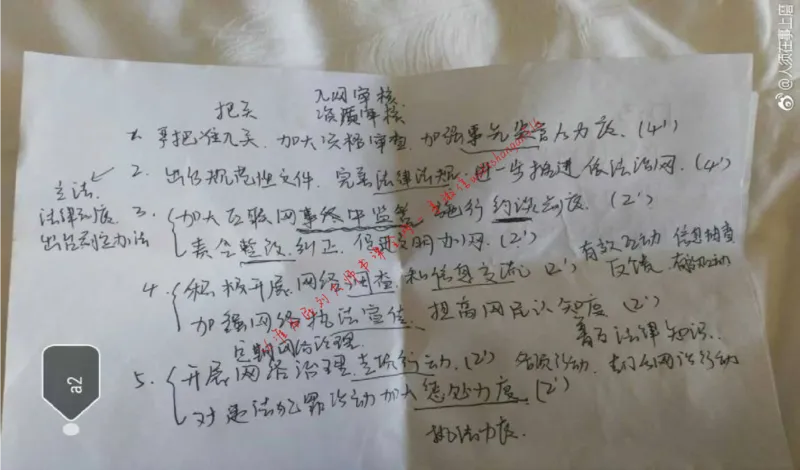 @人须在事上磨
入网审核
把关
资质审核
1. 要把准入关,加大资格审查,加强事先监管力度。(4')
2. 出台规范性文件,完善法律法规,进一步推进依法治网。(4')
立法
法律制度
出台制定办法
3. 加大互联网事发中监管,施行约谈制度。(2')
责令整改,纠正,促进文明办网。(2')
有效互动 信息抽查
反馈,有效互动
4. 积极开展网络调查,和信息交流(2')
加强网络执法宣传,提高网民认知度(2')
普万法律知识..
定期网络治理
5. 开展网络治理,专项行动,(2') 各项行动,
对违法犯罪活动加大惩处力度。(2')
执法力度.
a2